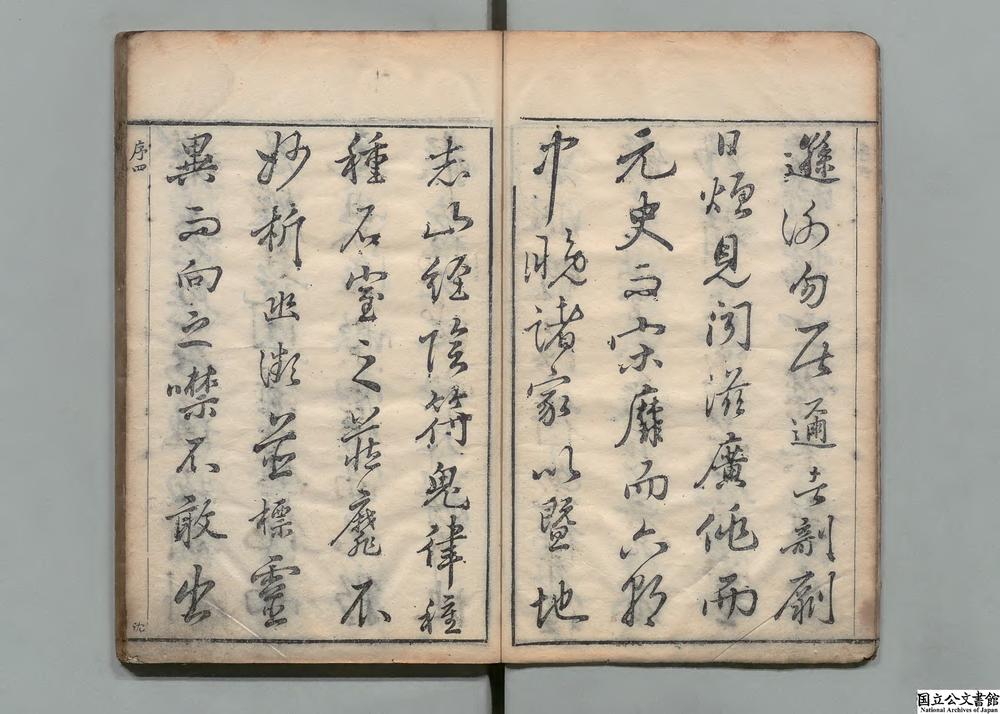 遜謝勿居邇者剞劂
日煩見聞滋廣佻而
元史而宋靡而六朝
中晚諸家以暨地
志山經陰符鬼律種
種石室之藏靡不
妙析幽微並標靈
異而向之噤不敢出
序四
沈
国立公文書館
National Archives of Japan